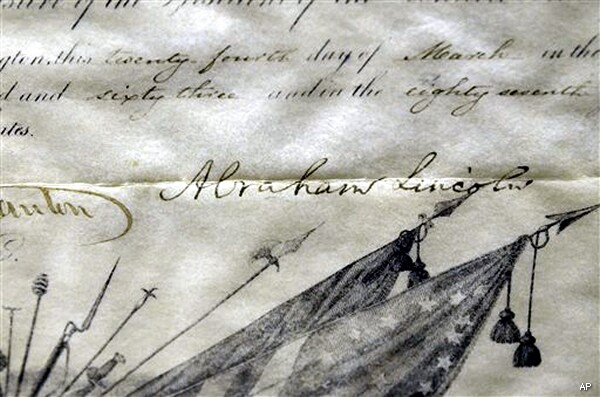 of the
gton, this twenty fourth day of March in the
d and sixty three and in the eighty seventh
ates.
Abraham Lincoln
anton
AP